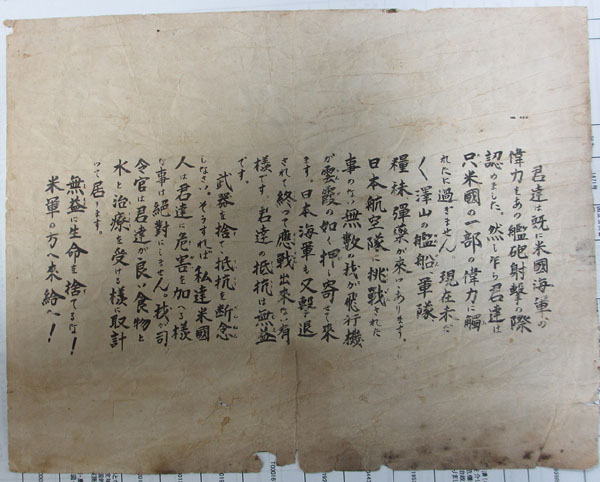 君達は既に米國海軍の
偉力をあの艦砲射撃の際
認めました。然し乍ら君達は
只米國の一部の偉力に觸
れたに過ぎません。現在未だ
〱澤山の艦船、軍隊
糧秣彈藥が来つゝあります。
日本航空隊に挑戰された
事のない無數の我が飛行機
が雲霞の如く押し寄さて來
ます。日本海軍も又撃退
されて終つて應戰出來ない有
様です。君達の抵抗は無益
です。
武器を捨て抵抗を断念
しなさい。そうすれば私達米國
人は君達に危害を加へる様
な事は絶對にしません。我が司
令官は君達が良い食物と
水と治療を受ける様に取計
いて居ます。
無益に生命を捨てるな!
米軍の方へ來給へ!